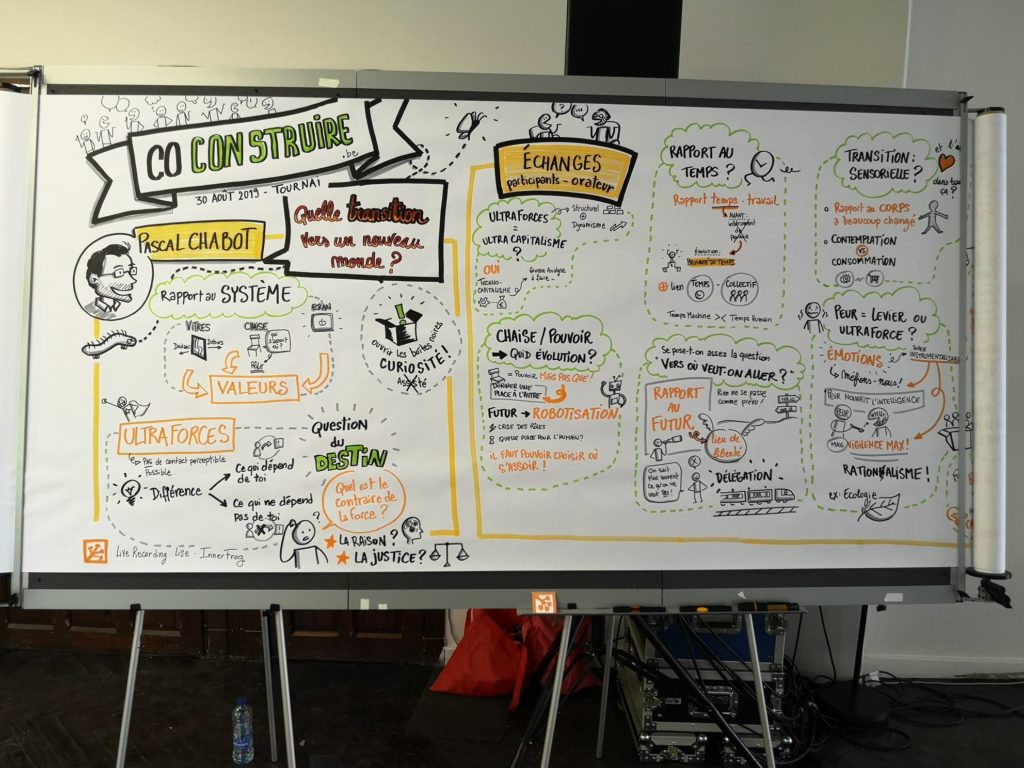 CO CONSTRUIRE
.be
30 AOÛT 2019 - TOURNAI
PASCAL CHABOT
Quelle transition
vers un nouveau
monde ?
Rapport au SYSTÈME
VITRES
CHAISE
ÉCRAN
Dedans
Dehors
RÔLE
VALEURS
ouvrir les boîtes noires
CURIOSITÉ !
ULTRAFORCES
Pas de contact perceptible
Possible
Différence
Ce qui dépend
de toi
Ce qui ne dépend
pas de toi
Question
du
DESTIN
Quel est le
contraire de
la force ?
?
LA RAISON ?
LA JUSTICE ?
Live Recording Lise - InnerFrog
ÉCHANGES
participants - orateur
ULTRAFORCES
=
ULTRA CAPITALISME
?
Structurel
+
Dynamisme
OUI
TECHNO-
CAPITALISME
Grosse Analyse
à faire...
CHAISE / POUVOIR
QUID ÉVOLUTION ?
= Pouvoir MAIS PAS QUE !
DONNER UNE
PLACE À L'AUTRE
FUTUR → ROBOTISATION
CRISE DES RÔLES
QUELLE PLACE POUR L'HUMAIN ?
IL FAUT POUVOIR CHOISIR OÙ
S'ASSOIR !
RAPPORT AU
TEMPS ?
Rapport temps - travail
AVANT :
Évolution :
+ lien
TEMPS
COLLECTIF
Temps Machine >< Temps Humain
"Se pose-t-on assez la question
VERS OÙ VEUT-ON ALLER ?"
RAPPORT
AU
FUTUR
Rien ne se passe
comme prévu !
lieu de
liberté
On sait
plus souvent
ce qu'on ne
veut pas !
DÉLÉGATION
TRANSITION :
SENSORIELLE ?
Rapport au CORPS
a beaucoup changé
CONTEMPLATION
VS
CONSOMMATION
et l'
dans tout
ça ?
PEUR = LEVIER OU
ULTRAFORCE ?
ÉMOTIONS
méfions-nous !
PEUR NOURRIT L'INTELLIGENCE
PEUR
MAIS VIGILENCE MAX !
RATIONALISME !
ex: Écologie